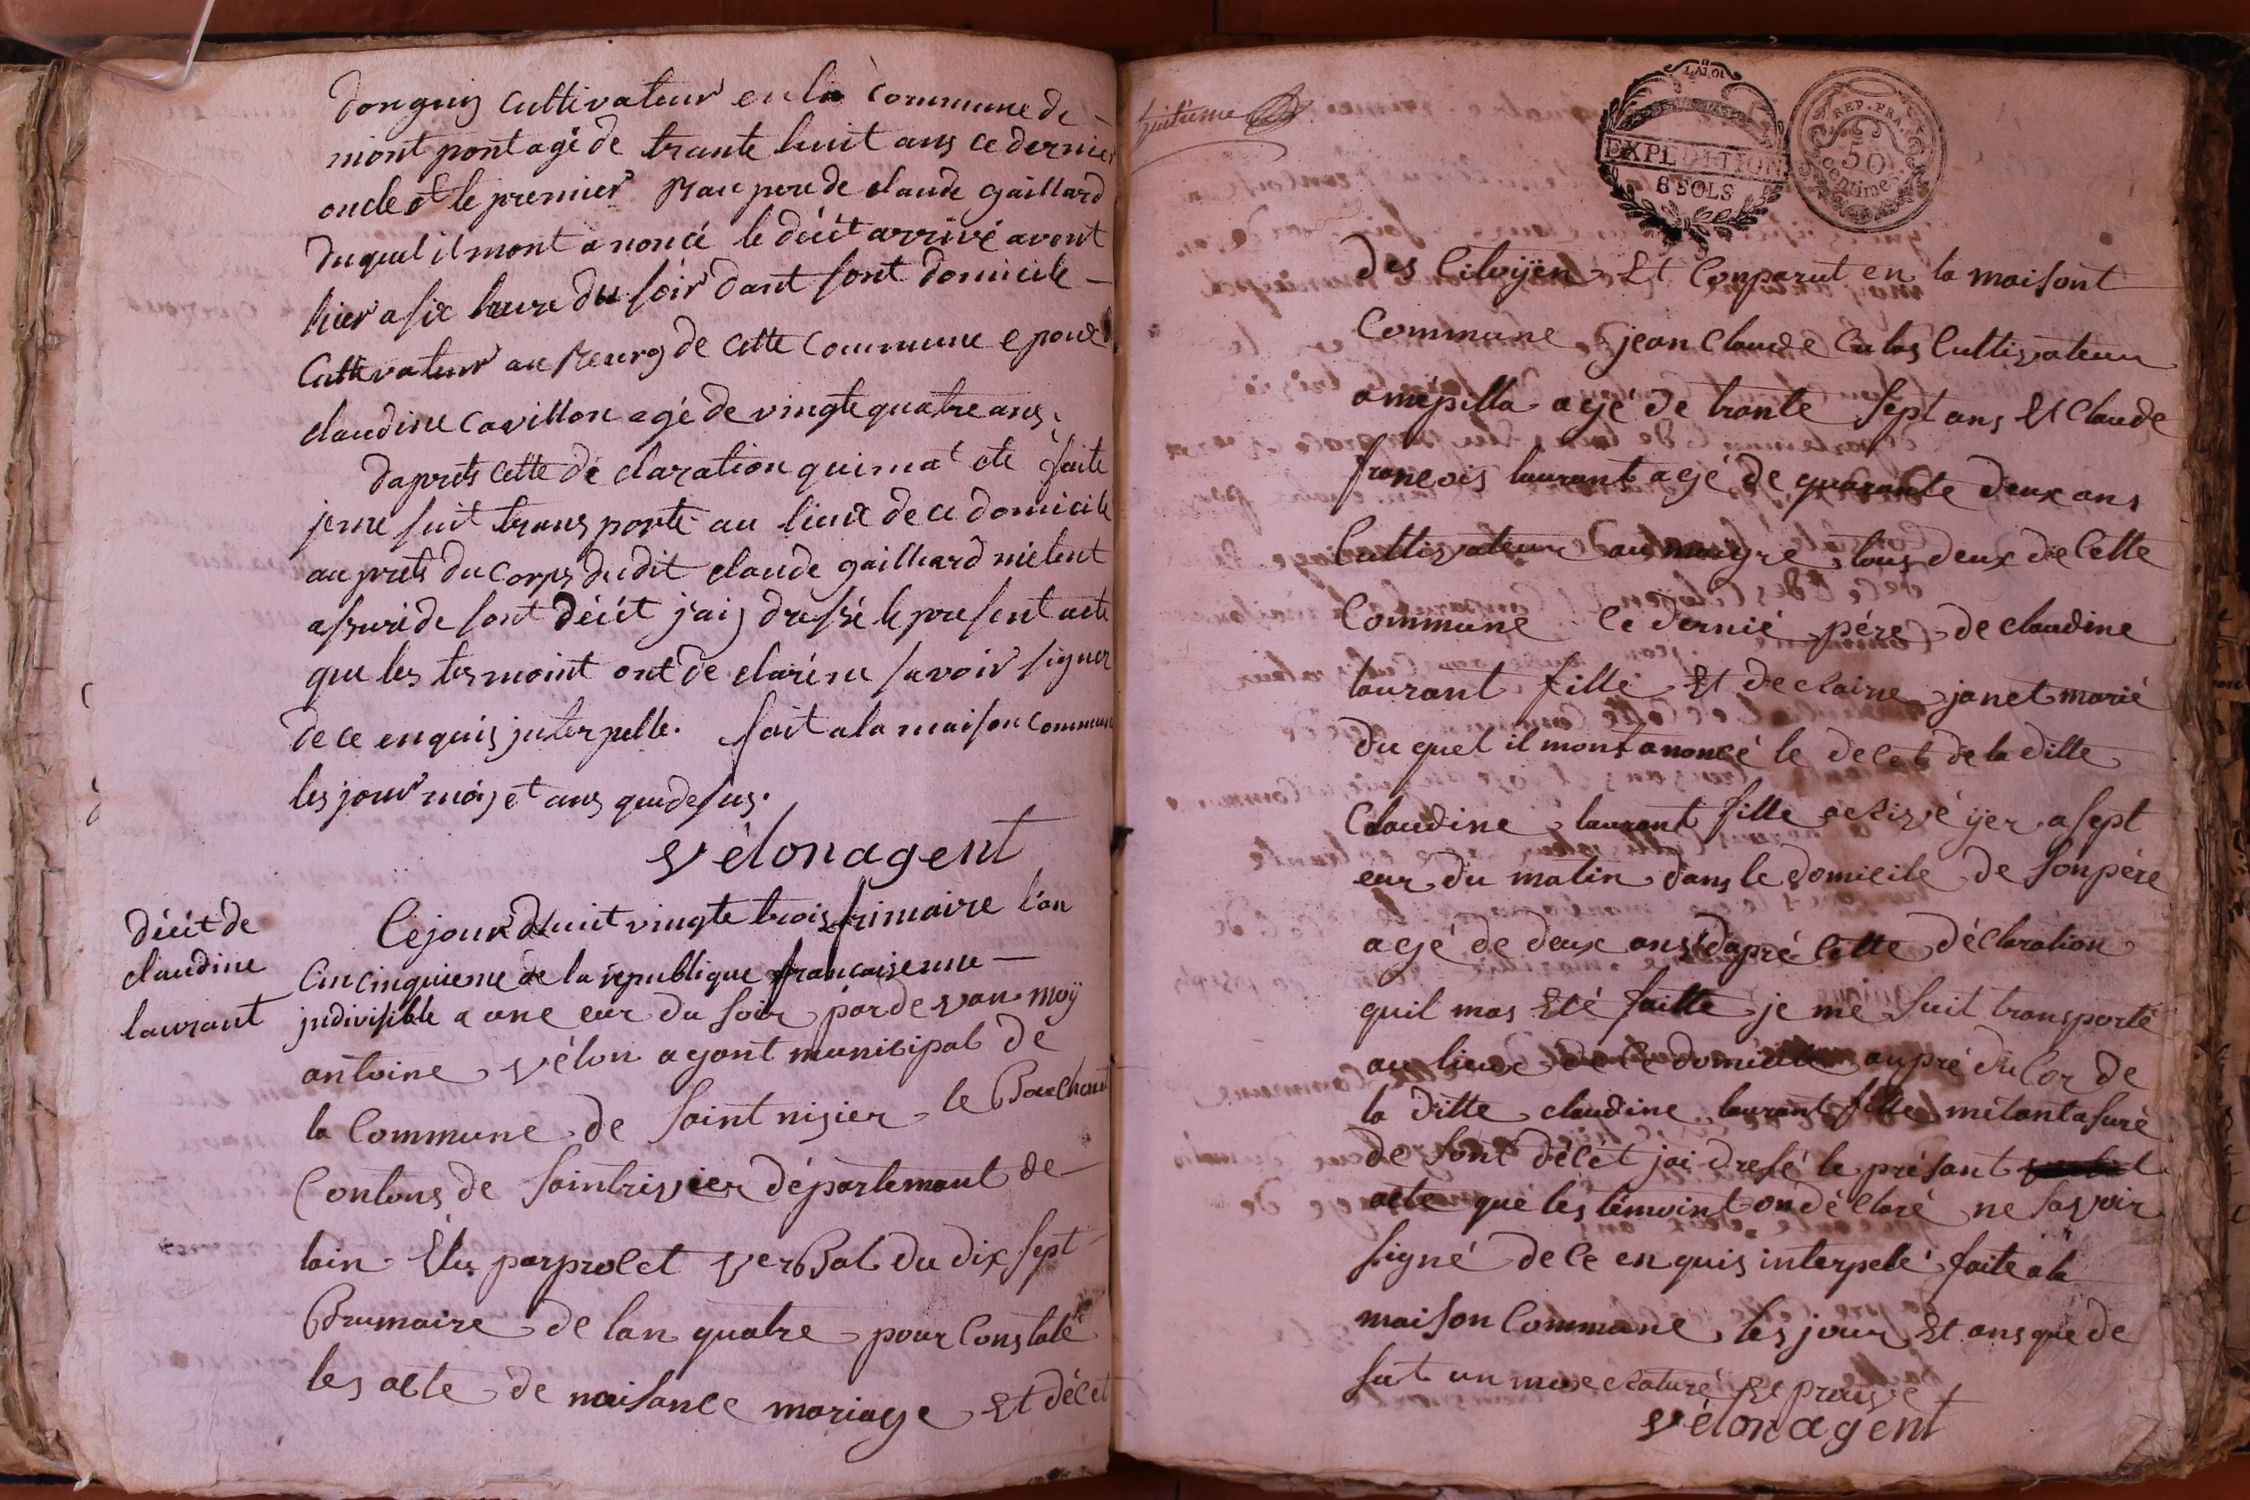 donguy cultivateur en la commune de
mont pont agé de trante huit ans ce dernier
oncle et le premier Bau pere de claude gaillard
duquel il mont anoncé le décit arrivé avent
hier a six heure du soir dant sont domicile
Cultivateur au Bourg de cette commune epoux
claudine cavillon agé de vingte quatre ans.
daprets cette de claration qui mat eté faite
je me suit trans porté au lieux de ce domicile
au prets du corps dudit claude gailliard mietent
assuré de sont décit j'ai dressé le present acte
que les tesmoint ont de claré ne savoir signer
de ce enquis jnterpellé. fait a la maison commune
les jour mois et ans que desus.
vélon agent
décit de
claudine
laurant
Cejourdhuit vingte trois frimaire l'an
Cincinquieme de la republique francaise unne
jndivisible a une eur du soir par de van moÿ
antoine vélon agant municipal de
la Commune de saint nisier le Bouchout
Contons de saintrivier départemant de
lain Elu par procet verBal du dix sept
Brumaire de lan quatre pour Constaté
les acte de naisance mariage Et décet
huitieme
LA LOI
EXPEDITION
8 SOLS
REP. FRA.
50
centimes
des Citoÿen Et Conparut en la maisont
Commune jean Claude Catos Cultivateur
a mépilla agé de trante sept ans Et Claude
francois laurant agé de quarante deux ans
Cultivateur au maigre tous deux de Cette
Commune Ce dernié pére de claudine
laurant fille Et de claire janet marié
du quel il mont anoncé le decet de la ditte
Claudine laurant fille arivé ÿer a sept
eur du matin dans le domicile de son pére
agé de deux ans dapré Cette déclaration
quil mas Eté faitte je me suit transporté
au lieux de Ce domicile aupré du Cor de
la ditte claudine laurant fille métant asuré
de sont décet jai dresé le présant
acte que les témoint on déclaré ne savoir
signé de Ce en quis interpelé faite a la
maison Commune les jour Et ans que de
sut un mox rature Et prouvé
vélon agent